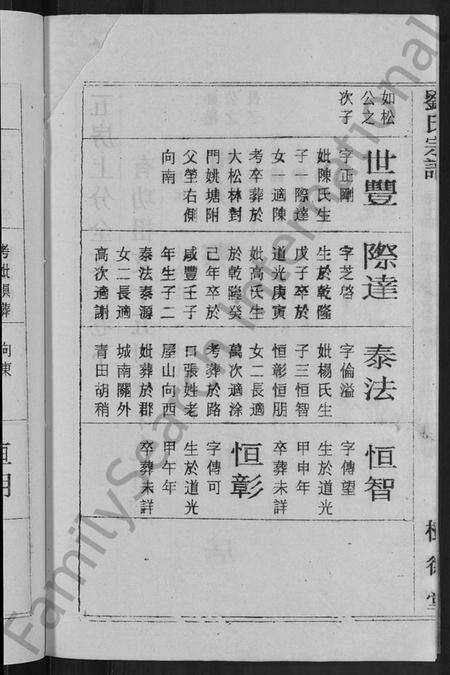 劉氏宗譜
如松
公之
次子
世豐
字正剛
妣陳氏生
子一際達
女一適陳
考卒葬於
大松林對
門姚塘附
父塋右側
向南
際達
字芝啓
生於乾隆
戊子卒於
道光庚寅
妣高氏生
於乾隆癸
己年卒於
咸豐壬子
年生子二
泰法泰源
女二長適
高次適謝
泰法
字倫溢
妣楊氏生
子三恒智
恒彰恒朋
女二長適
萬次適涂
考葬於路
口張姓老
屋山向西
妣葬於郡
城南關外
青田胡稍
恒智
字傳望
生於道光
甲申年
卒葬未詳
恒彰
字傳可
生於道光
甲午年
卒葬未詳
考妣俱葬
向東
FamilySearch International